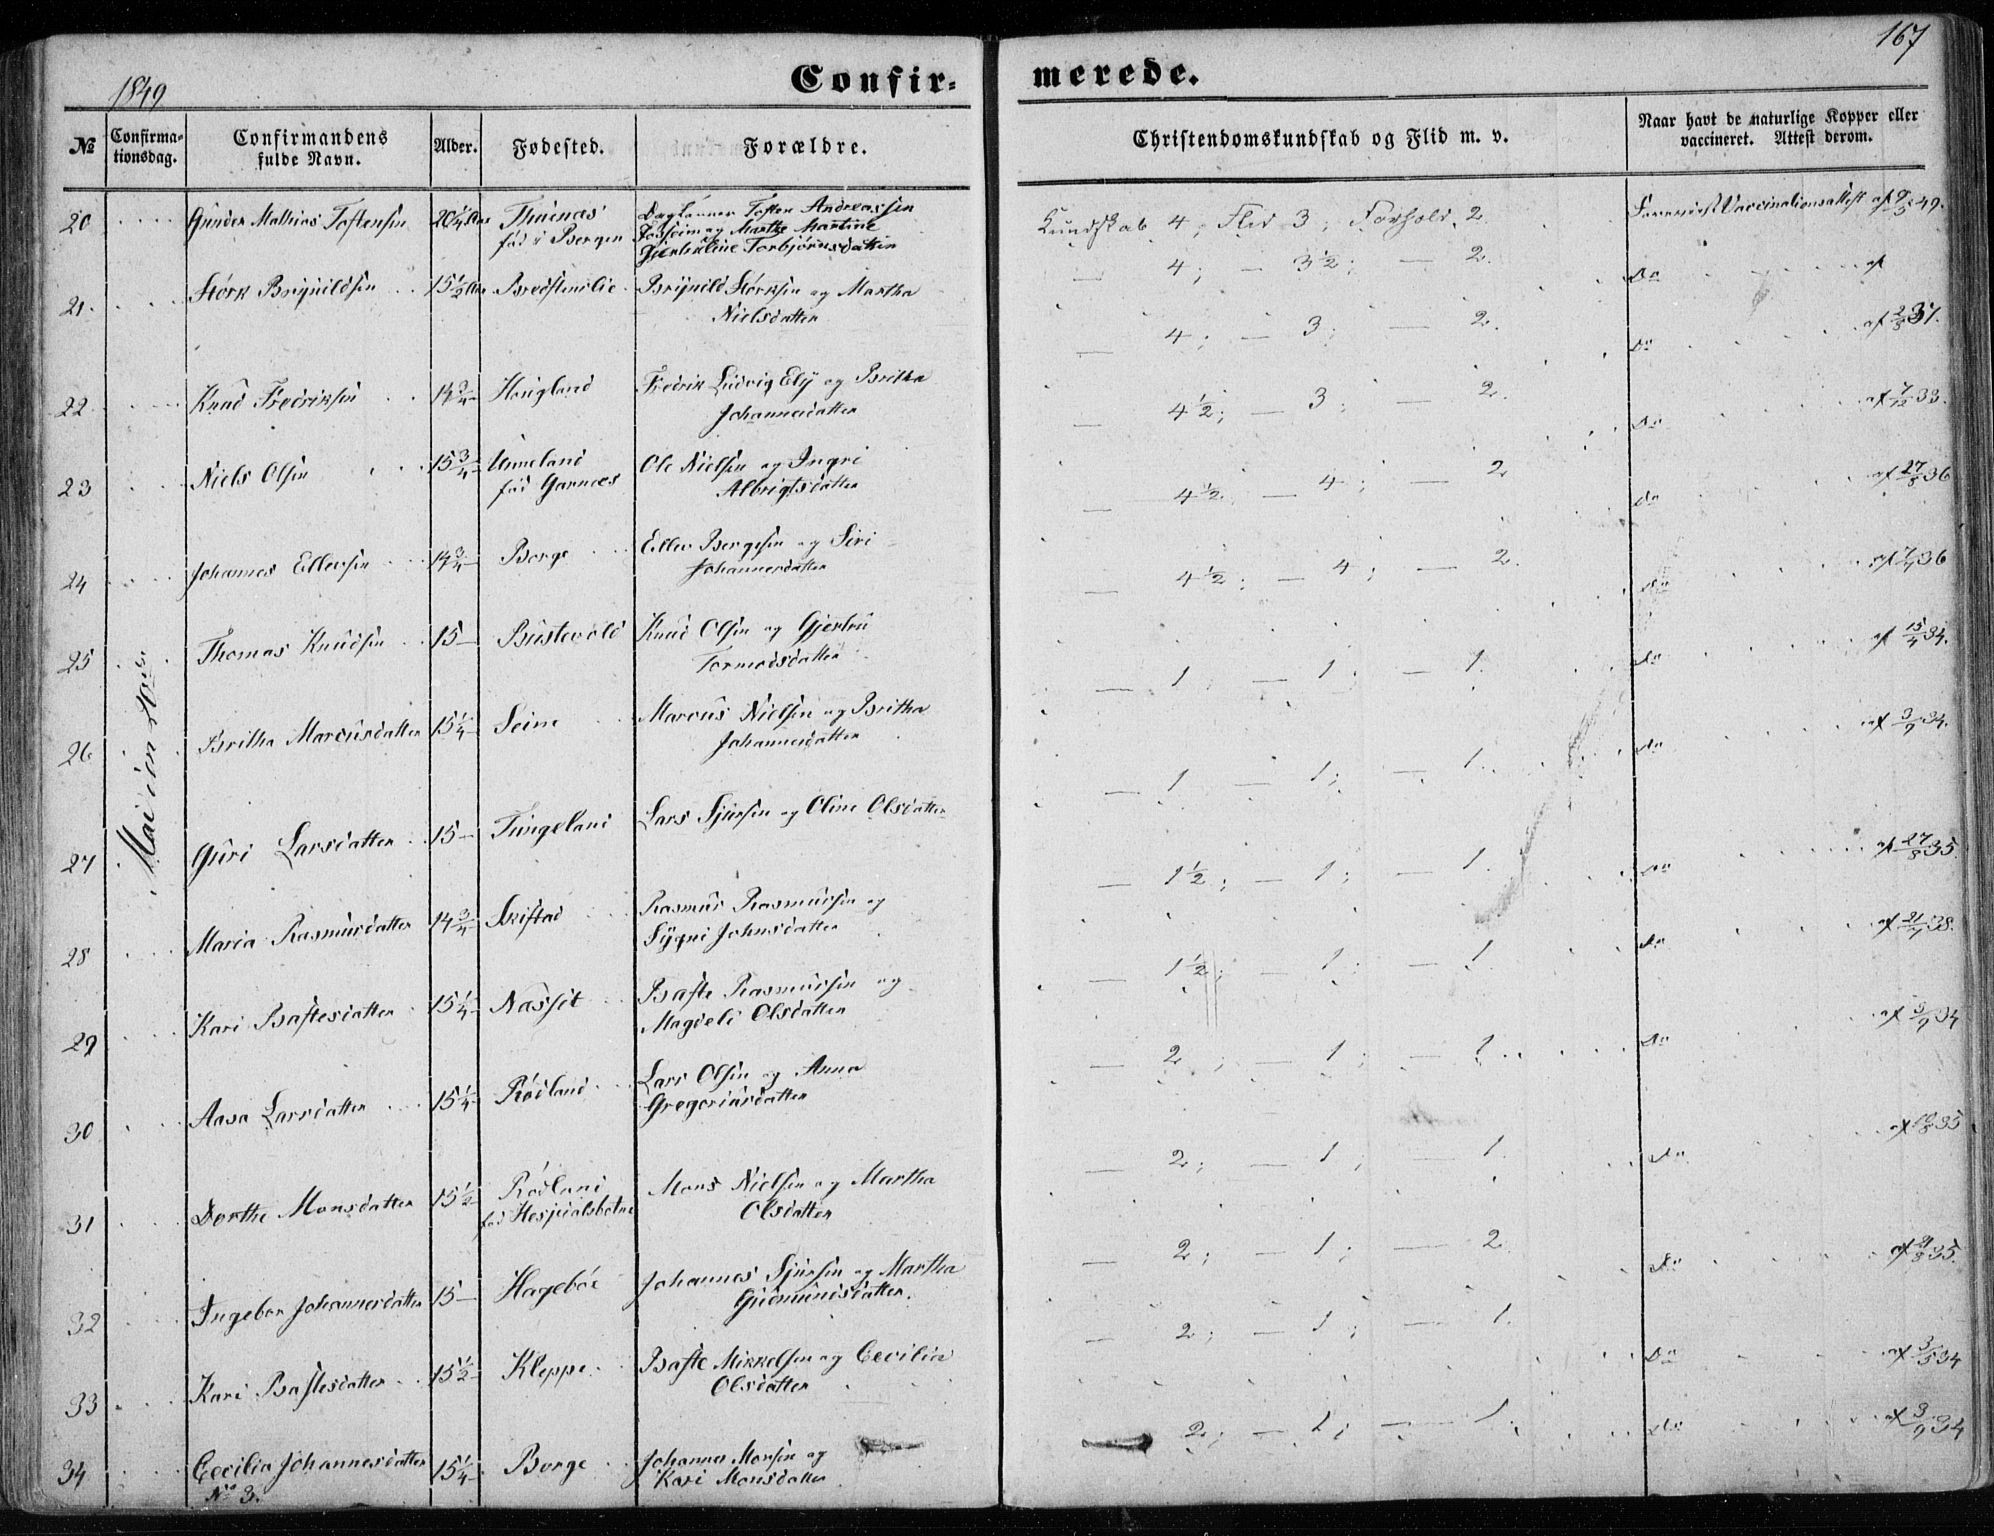 167
1849
Confir-
merede.
№ Confirma-tionsdag. Confirmandens fulde Navn. Alder. Fødested. Forældre. Christendomskundskab og Flid m. v. Naar havt de naturlige Kopper eller vaccineret. Attest derom.
Mai den
20 Gunder Mathias Toftensen 20 1/4 fød i Bergen Daglønner Toften Andreassen
og Marthe Martine
Torbjørnsdatter Kundskab 4, Flid 3; Forhold 2. Vaccinationsattest af 49.
21. Størk Brynildsen 15 1/2 Bredstenslie Brynild Størksen og Martha
Nielsdatter — 4; — 3 1/2; — 2. Do af
22 Knud Fredriksen 14 3/4 Haugland Fredrik Ludvig Ely og Britha
Johannesdatter — 4; — 3; — 2. Do af 2/8 37.
23 Niels Olsen 15 3/4 Unneland
fød Garnæs Ole Nielsen og Ingri
Albrigtsdatter — 4 1/2; — 3; — 2. Do af 7/12 33.
24 Johannes Ellevsen 14 3/4 Borge Ellev Bergesen og Siri
Johannesdatter — 4 1/2 — 4; — 2 Do af 27/8 36
25 Thomas Knudsen 15 — Bustevold Knud Olsen og Gjertru
Tormodsdatter — 4 1/2; — 4; — 2. Do af 36
26 Britha Marcusdatter 15 1/4 Seim Marcus Nielsen og Britha
Johannesdatter — 1; — 1; — 1. Do af 15/4 34.
27 Guri Larsdatter 15 — Tungeland Lars Sjursen og Oline Olsdatter — 1 — 1; — 1. Do af 3/9 34.
28 Maria Rasmusdatter 14 3/4 Skistad Rasmus Rasmussen og
Sygni Johnsdatter — 1 1/2; — 1; — 1. Do af 27/8 35.
29 Kari Baftesdatter 15 1/4 Næsset Bafte Rasmussen og
Magdeli Olsdatter — 1 1/2; — 1; — 1. Do af 21/9 38.
30 Aasa Larsdatter 15 1/4 Rødland Lars Olsen og Anna
Gregoriusdatter — 2; — 1; — 1. Do af 3/9 34
31 Dorthe Monsdatter 15 1/2 Rødland
fød Hospialsbotn Mons Nielsen og Martha
Olsdatter — 2; — 1; — 1. Do af 35
32 Ingebor Johannesdatter 15 — Hagebøe Johannes Sjursen og Martha
Gudmundsdatter. — 2; — 1; — 2 Do af 21/8 35.
33 Kari Baftesdatter 15 1/2 Kleppe Bafte Mikkelsen og Cecilia
Olsdatter — 2; — 1; — 1. Do af 3/5 34
34 Cecilia Johannesdatter 15 1/4 Borge Johannes Monsen og
Kari Monsdatter — 2; — 1; — 1. Do af 3/9 34
No 3.